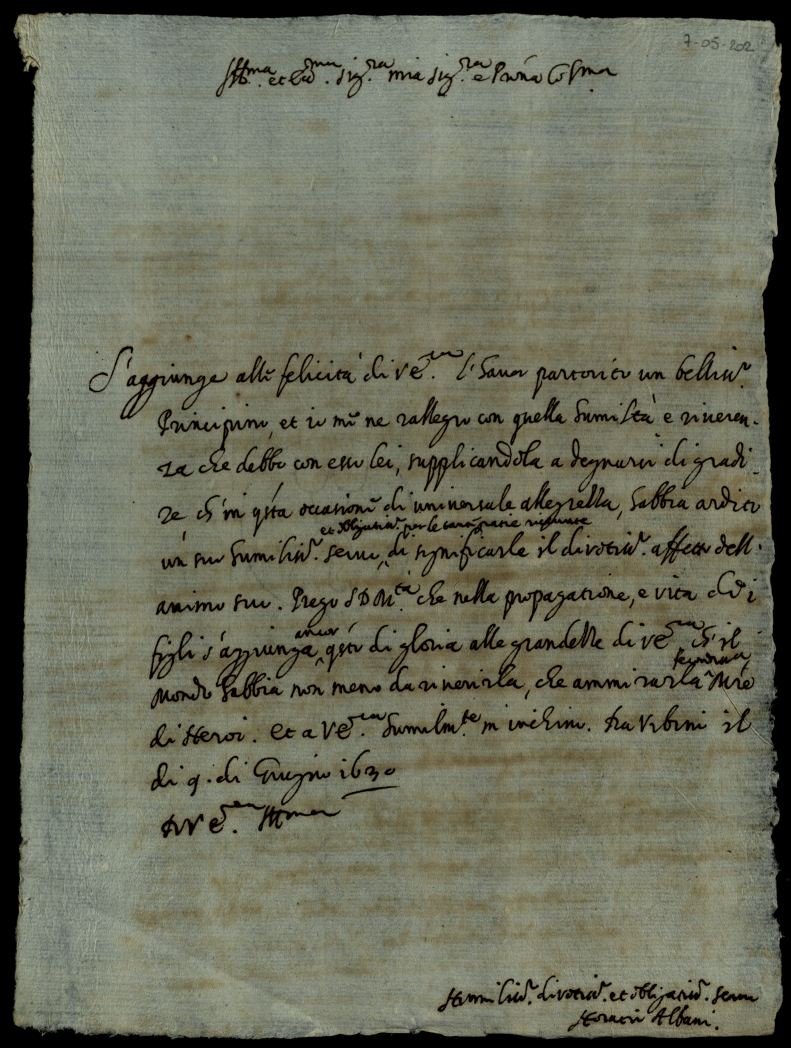 7-05-202
Ill.ma et Ecc.ma Sig.ra mia Sig.ra e Pròna Col.ma
S'aggiunge alle felicità di V E.za l'haver partorito un belliss.o
Principino, et io me ne rallegro con quella humiltà e riveren-
za che debbo con esso lei, supplicandola a degnarsi di gradi-
re ch'in q'sta occasione di universale allegrezza, habbia ardito
et obligatiss.o per le tante gratie ricevute
un suo humiliss.o servo, di significarle il divotiss.o affetto dell'
animo suo. Prego S D M.tà che nella propagatione, e vita de i
ancor
figli s'aggiunga q'sto di gloria alle grandezze di V E.za ch'il
feconda
Mondo habbia non meno da riverirla, che ammirarla M're
di Heroi. Et a V E.za humilm.te m'inchino. Da Urbino il
di 9. di Giugno 1630
Di V E.za Ill.ma
Humiliss.o divotiss.o et obligatiss.o servo
Horatio Albani.